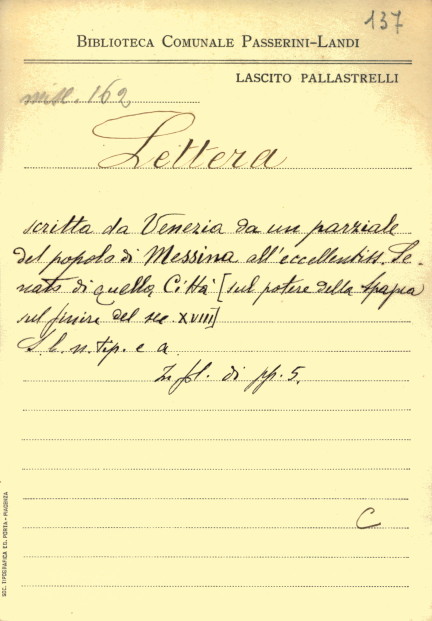 137
BIBLIOTECA COMUNALE PASSERINI-LANDI
LASCITO PALLASTRELLI
misc. 162
Lettera
scritta da Venezia da un parziale
del popolo di Messina all'eccellentiss. Se-
nato di quella Città [sul potere della Spagna
sul finire del sec. XVIII]
S. l. n. tip. e a.
In fol. di pp. 5.
C
SOC. TIPOGRAFICA ED. PORTA - PIACENZA